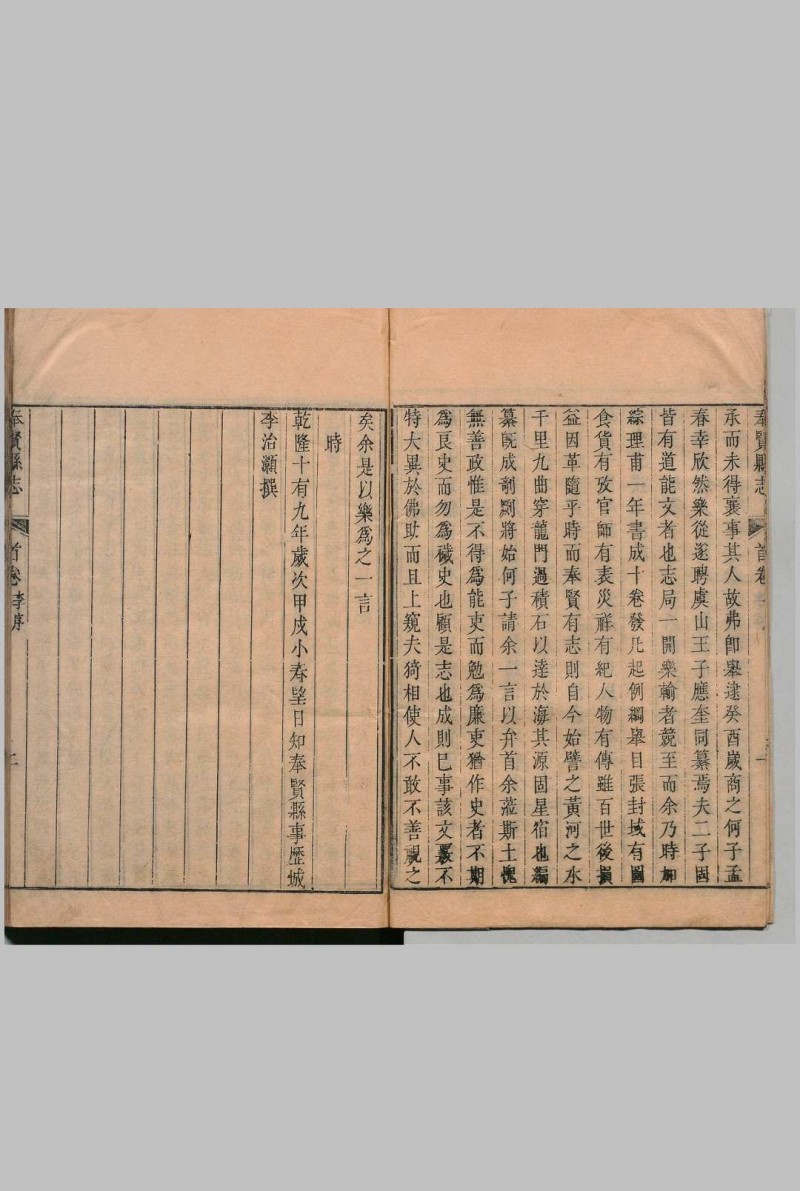 奉賢縣志 首卷
承而未得襄事其人故弗卽舉逮癸酉歲商之何子孟
春幸欣然樂從遂聘虞山王子應奎同纂焉夫二子固
皆有道能文者也志局一開樂輸者競至而余乃時加
綜理甫一年書成十卷發凡起例綱舉目張封域有圖
食貨有攷官師有表災祥有紀人物有傳雖百世後損
益因革隨乎時而奉賢有志則自今始譬之黃河之水
千里九曲穿龍門過積石以達於海其源固星宿也編
纂旣成剞劂將始何子請余一言以弁首余蒞斯土愧
無善政惟是不得爲能吏而勉爲廉吏猶作史者不期
爲良史而勿爲穢史也顧是志也成則已事該文覈不
特大異於佛助而且上窺夫猗相使人不敢不善視之
矣余是以樂爲之一言
時
乾隆十有九年歲次甲戌小春望日知奉賢縣事歷城
李治灝撰
奉賢縣志 首卷 李序 二